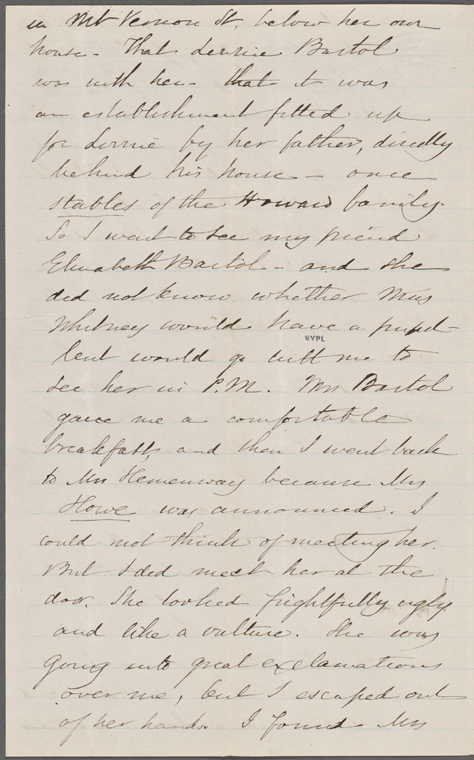 in Mt Vernon St. below her our
house - That Lizzie Bartol
was with her - that it was
an establishment fitted up
for Lizzie by her father, directly
behind his house - once
stables of the Howard family.
So I went to see my friend
Elizabeth Bartol - and she
did not know whether Miss
Whitney would have a pupil -
but would go with me to
see her in P.M. Mrs Bartol
gave me a comfortable
breakfast, and then I went back
to Mrs Hemenway because Mrs
Howe was announced. I
could not think of meeting her.
But I did meet her at the
door. She looked frightfully ugly
and like a vulture. She was
going into great exclamations
over me, but I escaped out
of her hands. I found Mrs
NYPL